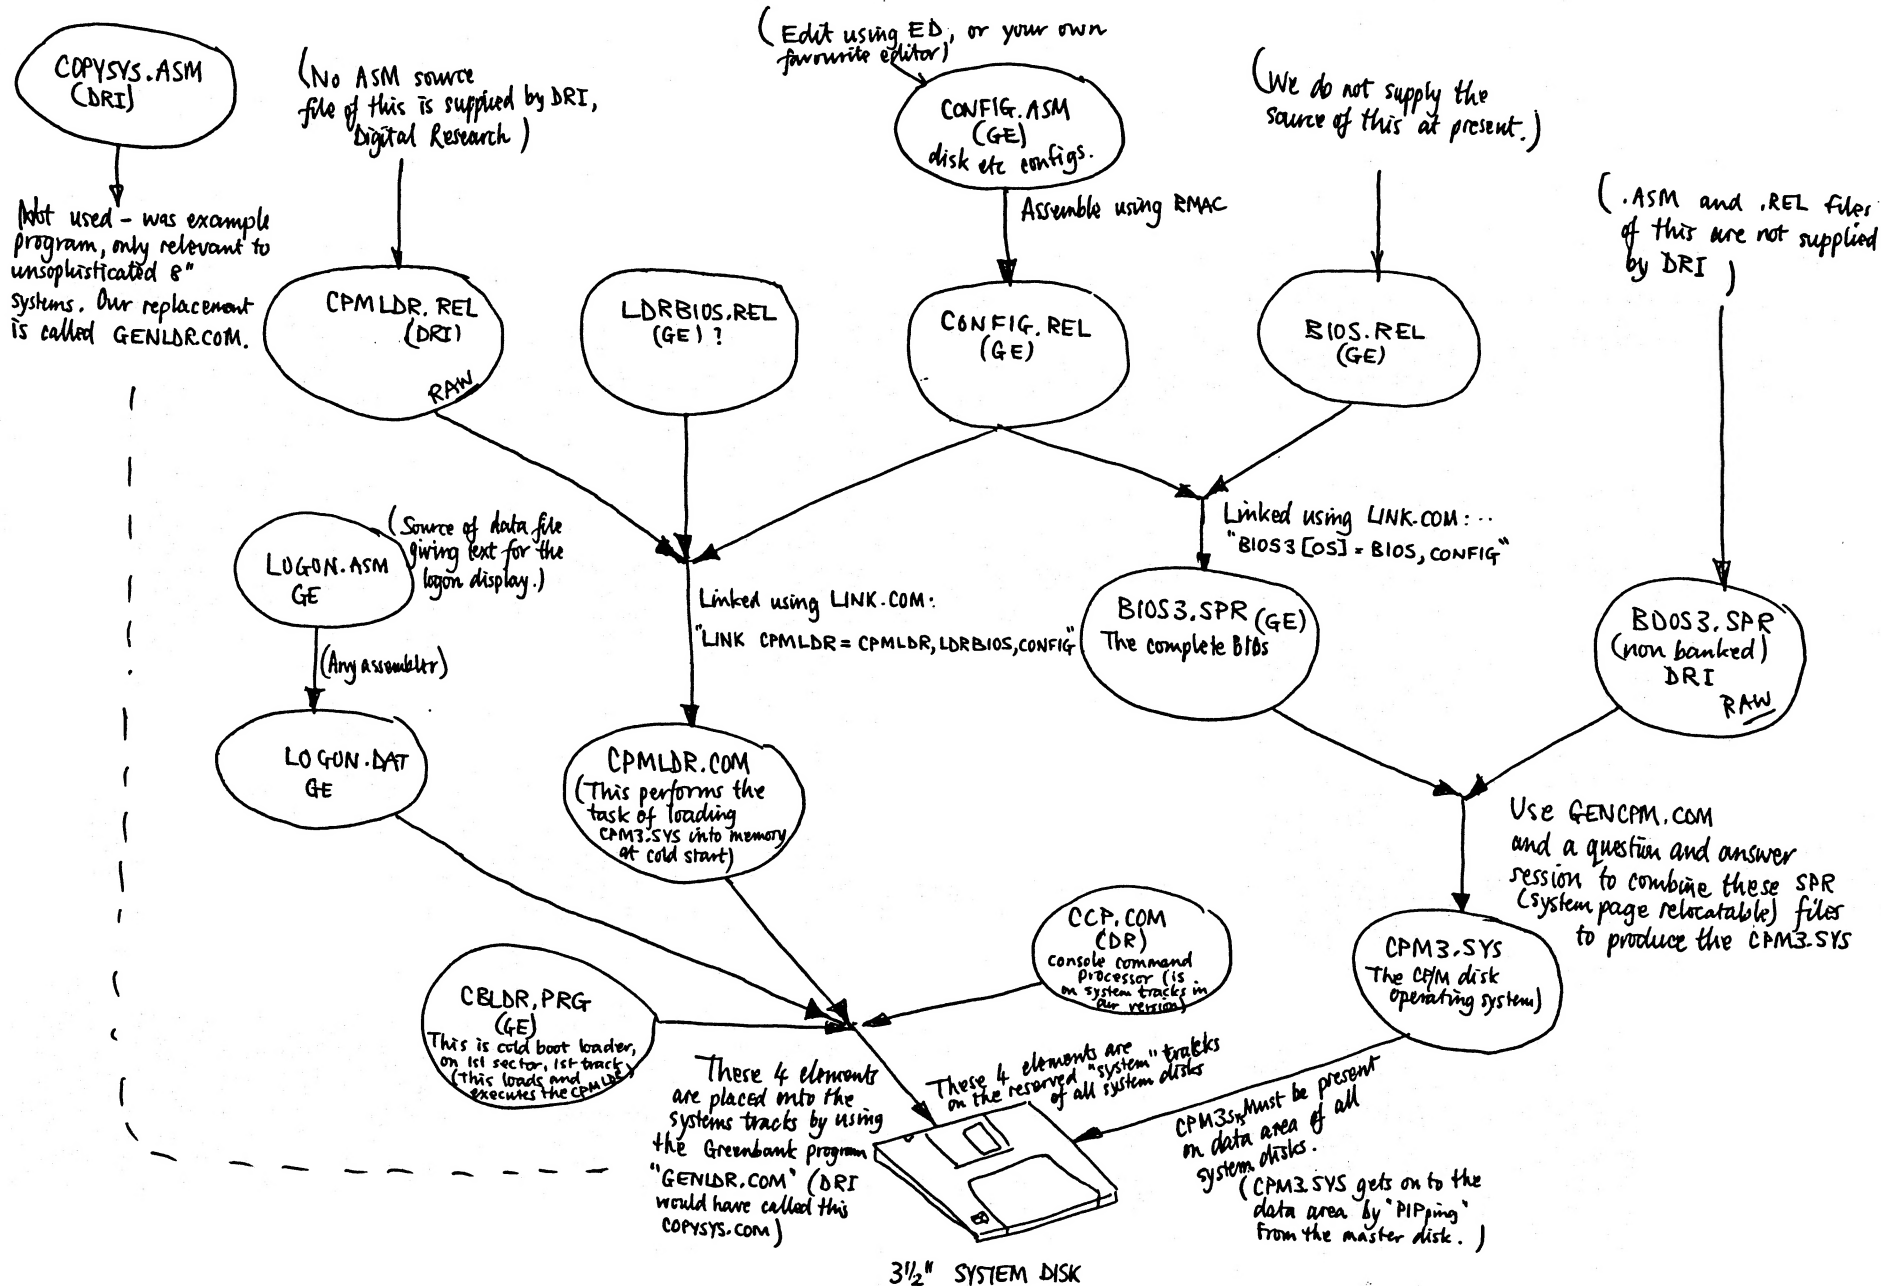 COPYSYS.ASM
(DRI)
Not used - was example
program, only relevant to
unsophisticated 8"
systems. Our replacement
is called GENLDR.COM.
(No ASM source
file of this is supplied by DRI,
Digital Research)
CPMLDR.REL
(DRI)
RAW
LDRBIOS.REL
(GE) ?
(Edit using ED, or your own
favourite editor)
CONFIG.ASM
(GE)
disk etc configs.
Assemble using RMAC
CONFIG.REL
(GE)
(We do not supply the
source of this at present.)
BIOS.REL
(GE)
(.ASM and .REL files
of this are not supplied
by DRI)
LOGON.ASM
GE
(Source of data file
giving text for the
logon display.)
(Any assembler)
LOGON.DAT
GE
Linked using LINK.COM:
"LINK CPMLDR = CPMLDR, LDRBIOS, CONFIG"
Linked using LINK.COM:..
"BIOS3[OS] = BIOS, CONFIG"
BIOS3.SPR (GE)
The complete BIOS
BDOS3.SPR
(non banked)
DRI
RAW
CPMLDR.COM
(This performs the
task of loading
CPM3.SYS into memory
at cold start)
Use GENCPM.COM
and a question and answer
session to combine these SPR
(system page relocatable) files
to produce the CPM3.SYS
CCP.COM
(DR)
console command
processor (is
on system tracks in
our version)
CPM3.SYS
The CP/M disk
operating system)
CBLDR.PRG
(GE)
This is cold boot loader,
on 1st sector, 1st track
(This loads and
executes the CPMLDR)
These 4 elements
are placed onto the
systems tracks by using
the Greenbank program
"GENLDR.COM" (DRI
would have called this
COPYSYS.COM)
These 4 elements are
on the reserved "system" tracks
of all system disks
CPM3.SYS Must be present
on data area of all
system disks.
(CPM3.SYS gets on to the
data area by "PIPping"
from the master disk.)
3½" SYSTEM DISK